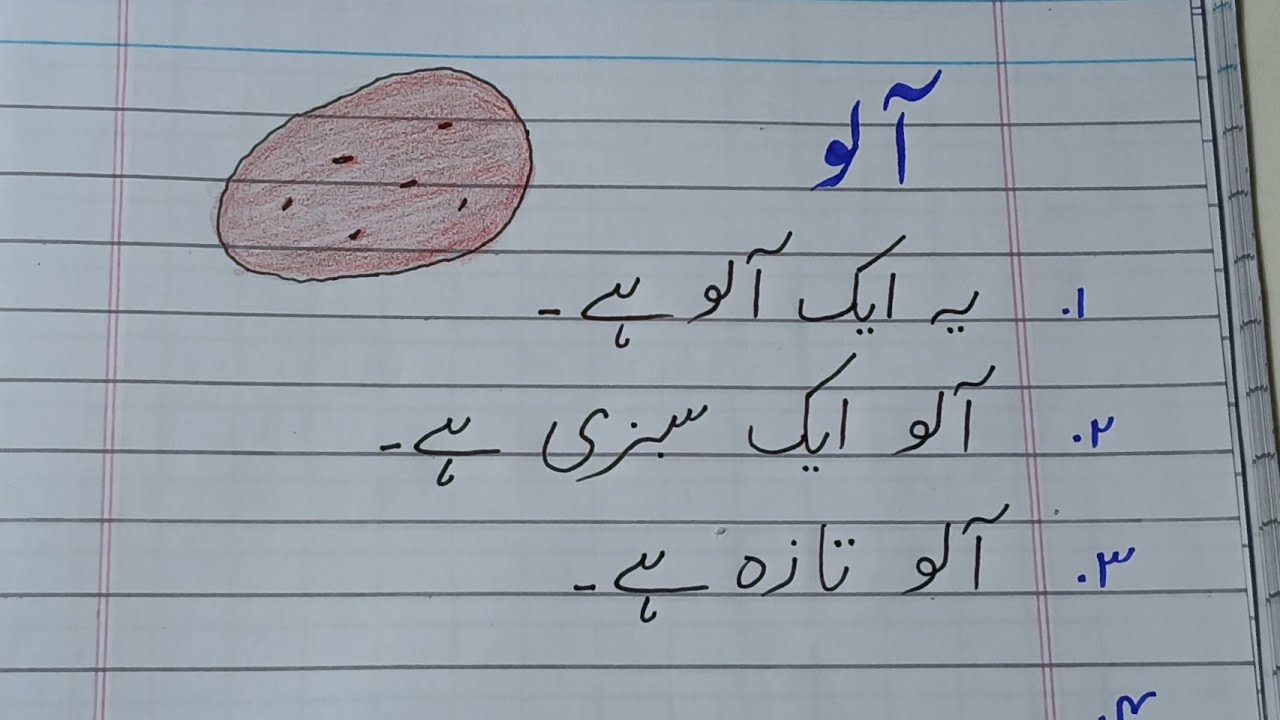 آلو
۱. یہ ایک آلو ہے۔
۲. آلو ایک سبزی ہے۔
۳. آلو تازہ ہے۔
۴.